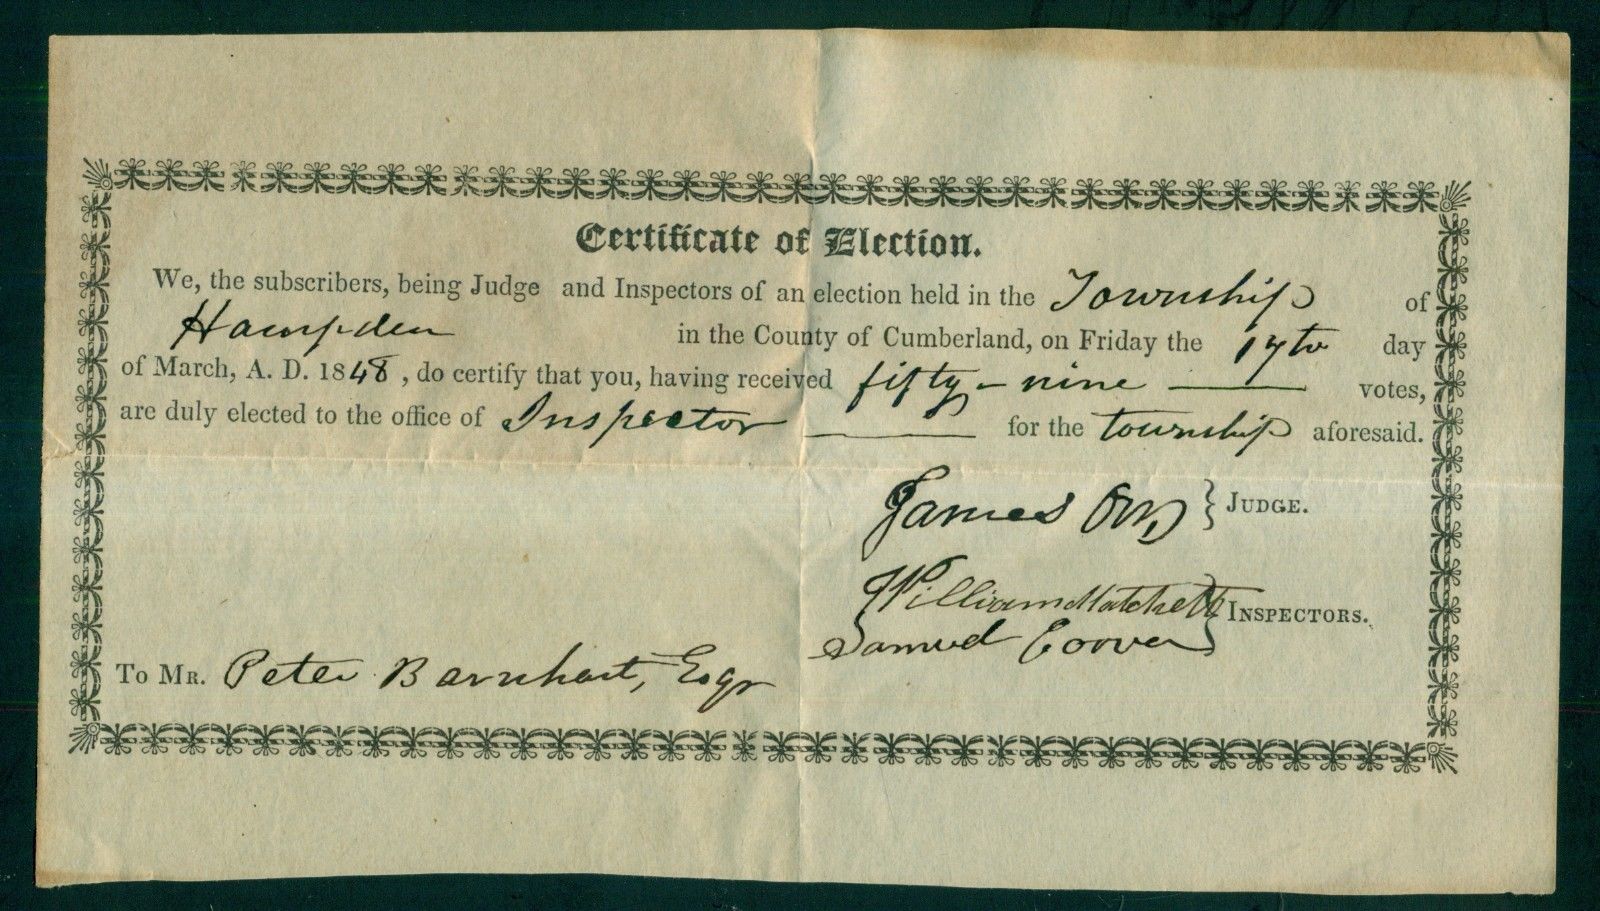 Certificate of Election.
We, the subscribers, being Judge and Inspectors of an election held in the Township of
Hampden in the County of Cumberland, on Friday the 17th day
of March, A. D. 1848, do certify that you, having received fifty-nine votes,
are duly elected to the office of Inspector for the township aforesaid.
James Orr } JUDGE.
William Matchett
} INSPECTORS.
Samuel Coover
TO MR. Peter Barnhart, Esqr